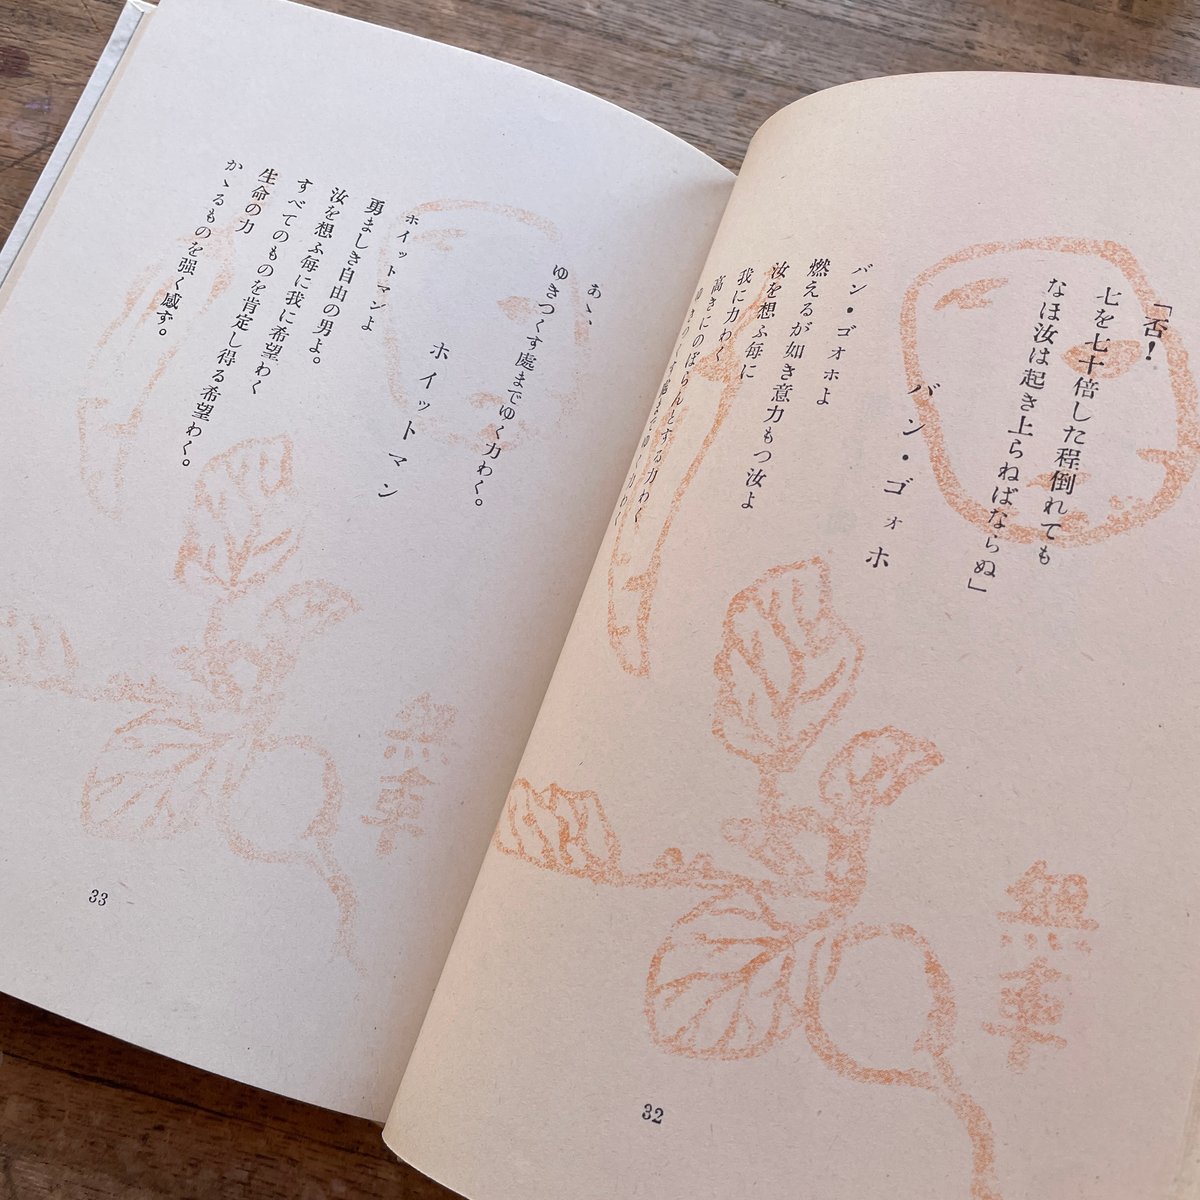 「否！
七を七十倍した程倒れても
なほ汝は起き上らねばならぬ」
バン・ゴォホ
バン・ゴォホよ
燃えるが如き意力もつ汝よ
汝を想ふ毎に
我に力わく
高きにのぼらんとする力わく
ゆきつくす處までゆく力わく
32
あゝ、
ゆきつくす處までゆく力わく。
ホイットマン
ホイットマンよ
勇ましき自由の男よ。
汝を想ふ毎に我に希望わく
すべてのものを肯定し得る希望わく。
生命の力
かゝるものを強く感ず。
33
無車
無車